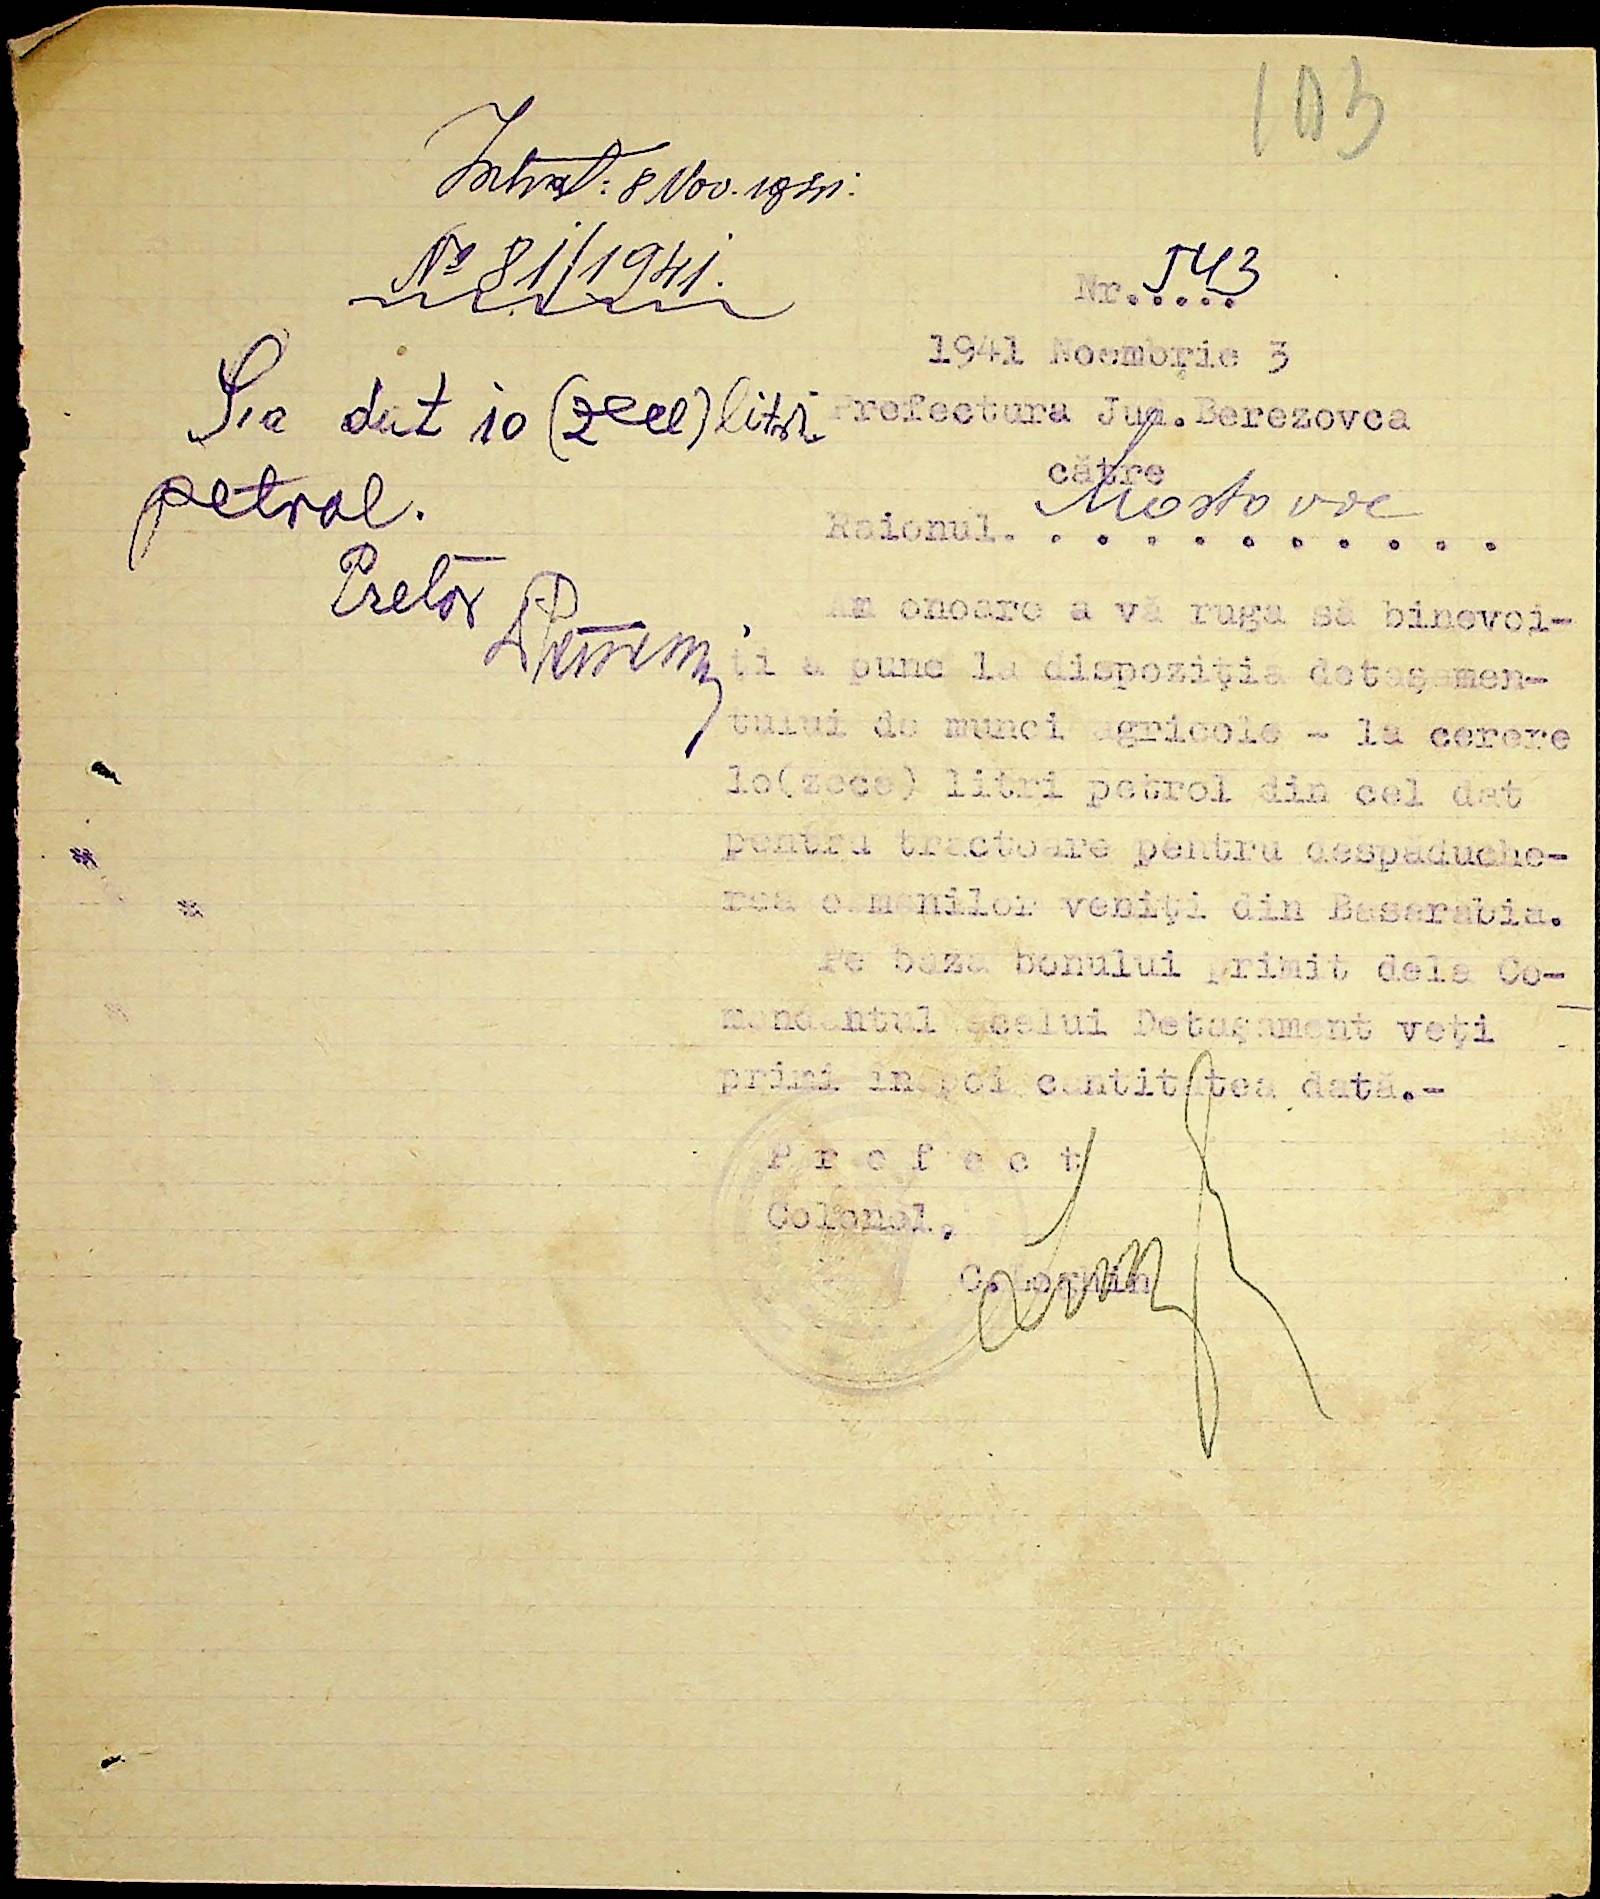 103
Intrat: 8 Nov. 1941.
№ 81/1941.
S'a dat 10 (zece) litri
petrol.
Pretor
Nr. 543
1941 Noembrie 3
Prefectura Jud. Berezovca
către
Raionul. Mostovoe
Am onoare a vă ruga să binevoi-
ți a pune la dispoziția detașamen-
tului de munci agricole - la cerere
lo(zece) litri petrol din cel dat
pentru tractoare pentru despăduche-
rea oamenilor veniți din Basarabia.
Pe baza bonului primit dela Co-
mandantul acelui Detașament veți
primi înapoi cantitatea dată.-
P r e f e c t
Colonel,
C. Loghin